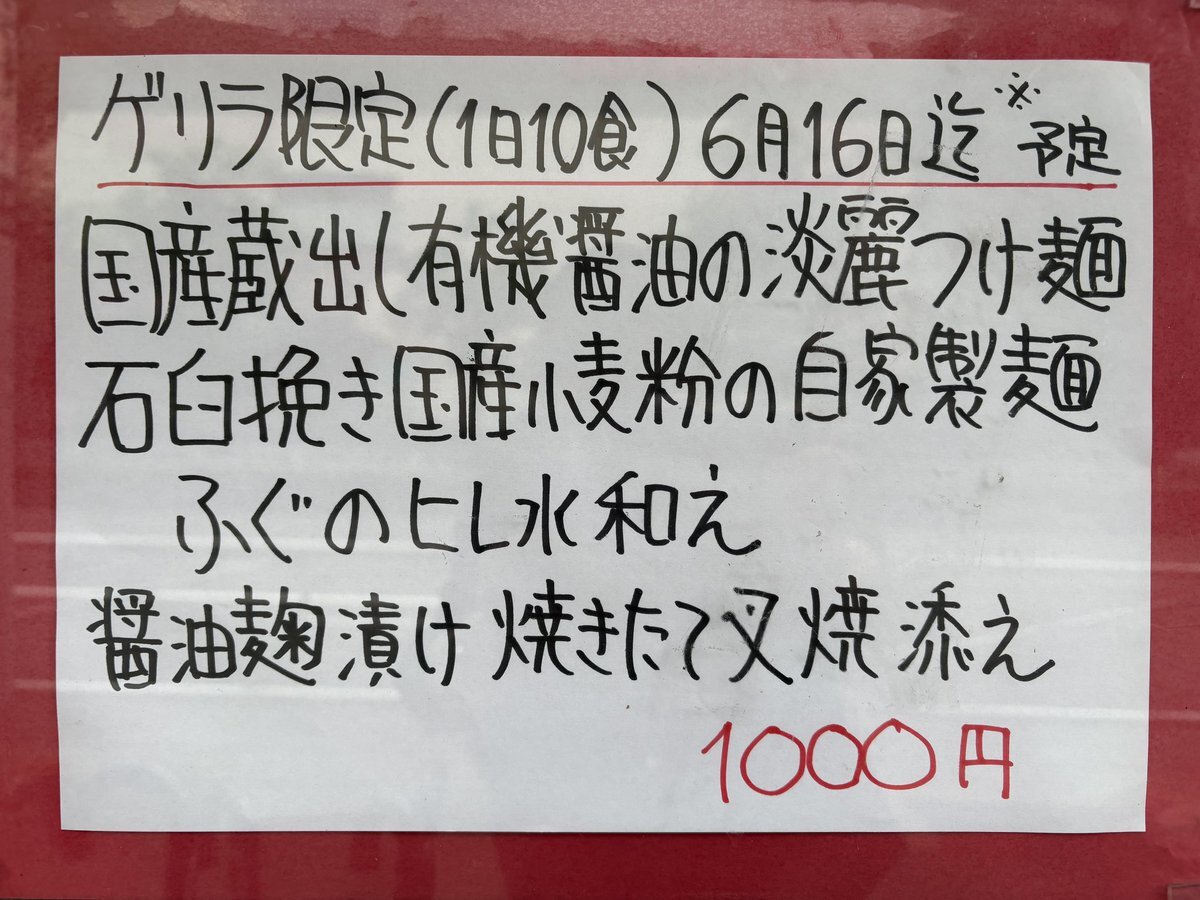 ゲリラ限定(1日10食)6月16日迄※予定
国産蔵出し有機醤油の淡麗つけ麺
石臼挽き国産小麦粉の自家製麺
ふぐのヒレ水和え
醤油麹漬け 焼きたて叉焼添え
1000円